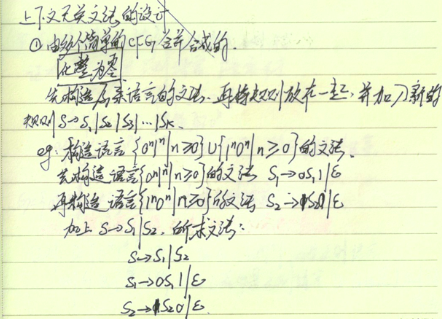 上下文无关文法的设计
① 由多个简单的CFG合并合成的.
化整为零
先构造各子语言的文法, 再将规则放在一起, 并加入新的
规则 S→S₁|S₂|S₃|…|Sₖ.
eg: 构造语言 {0ⁿ1ⁿ|n≥0}∪{1ⁿ0ⁿ|n≥0}的文法.
先构造语言{0ⁿ1ⁿ|n≥0}的文法 S₁→0S₁1|ε
再构造语言{1ⁿ0ⁿ|n≥0}的文法 S₂→1S₂0|ε
加上 S→S₁|S₂, 所求文法:
S→S₁|S₂
S₁→0S₁1|ε
S₂→1S₂0|ε